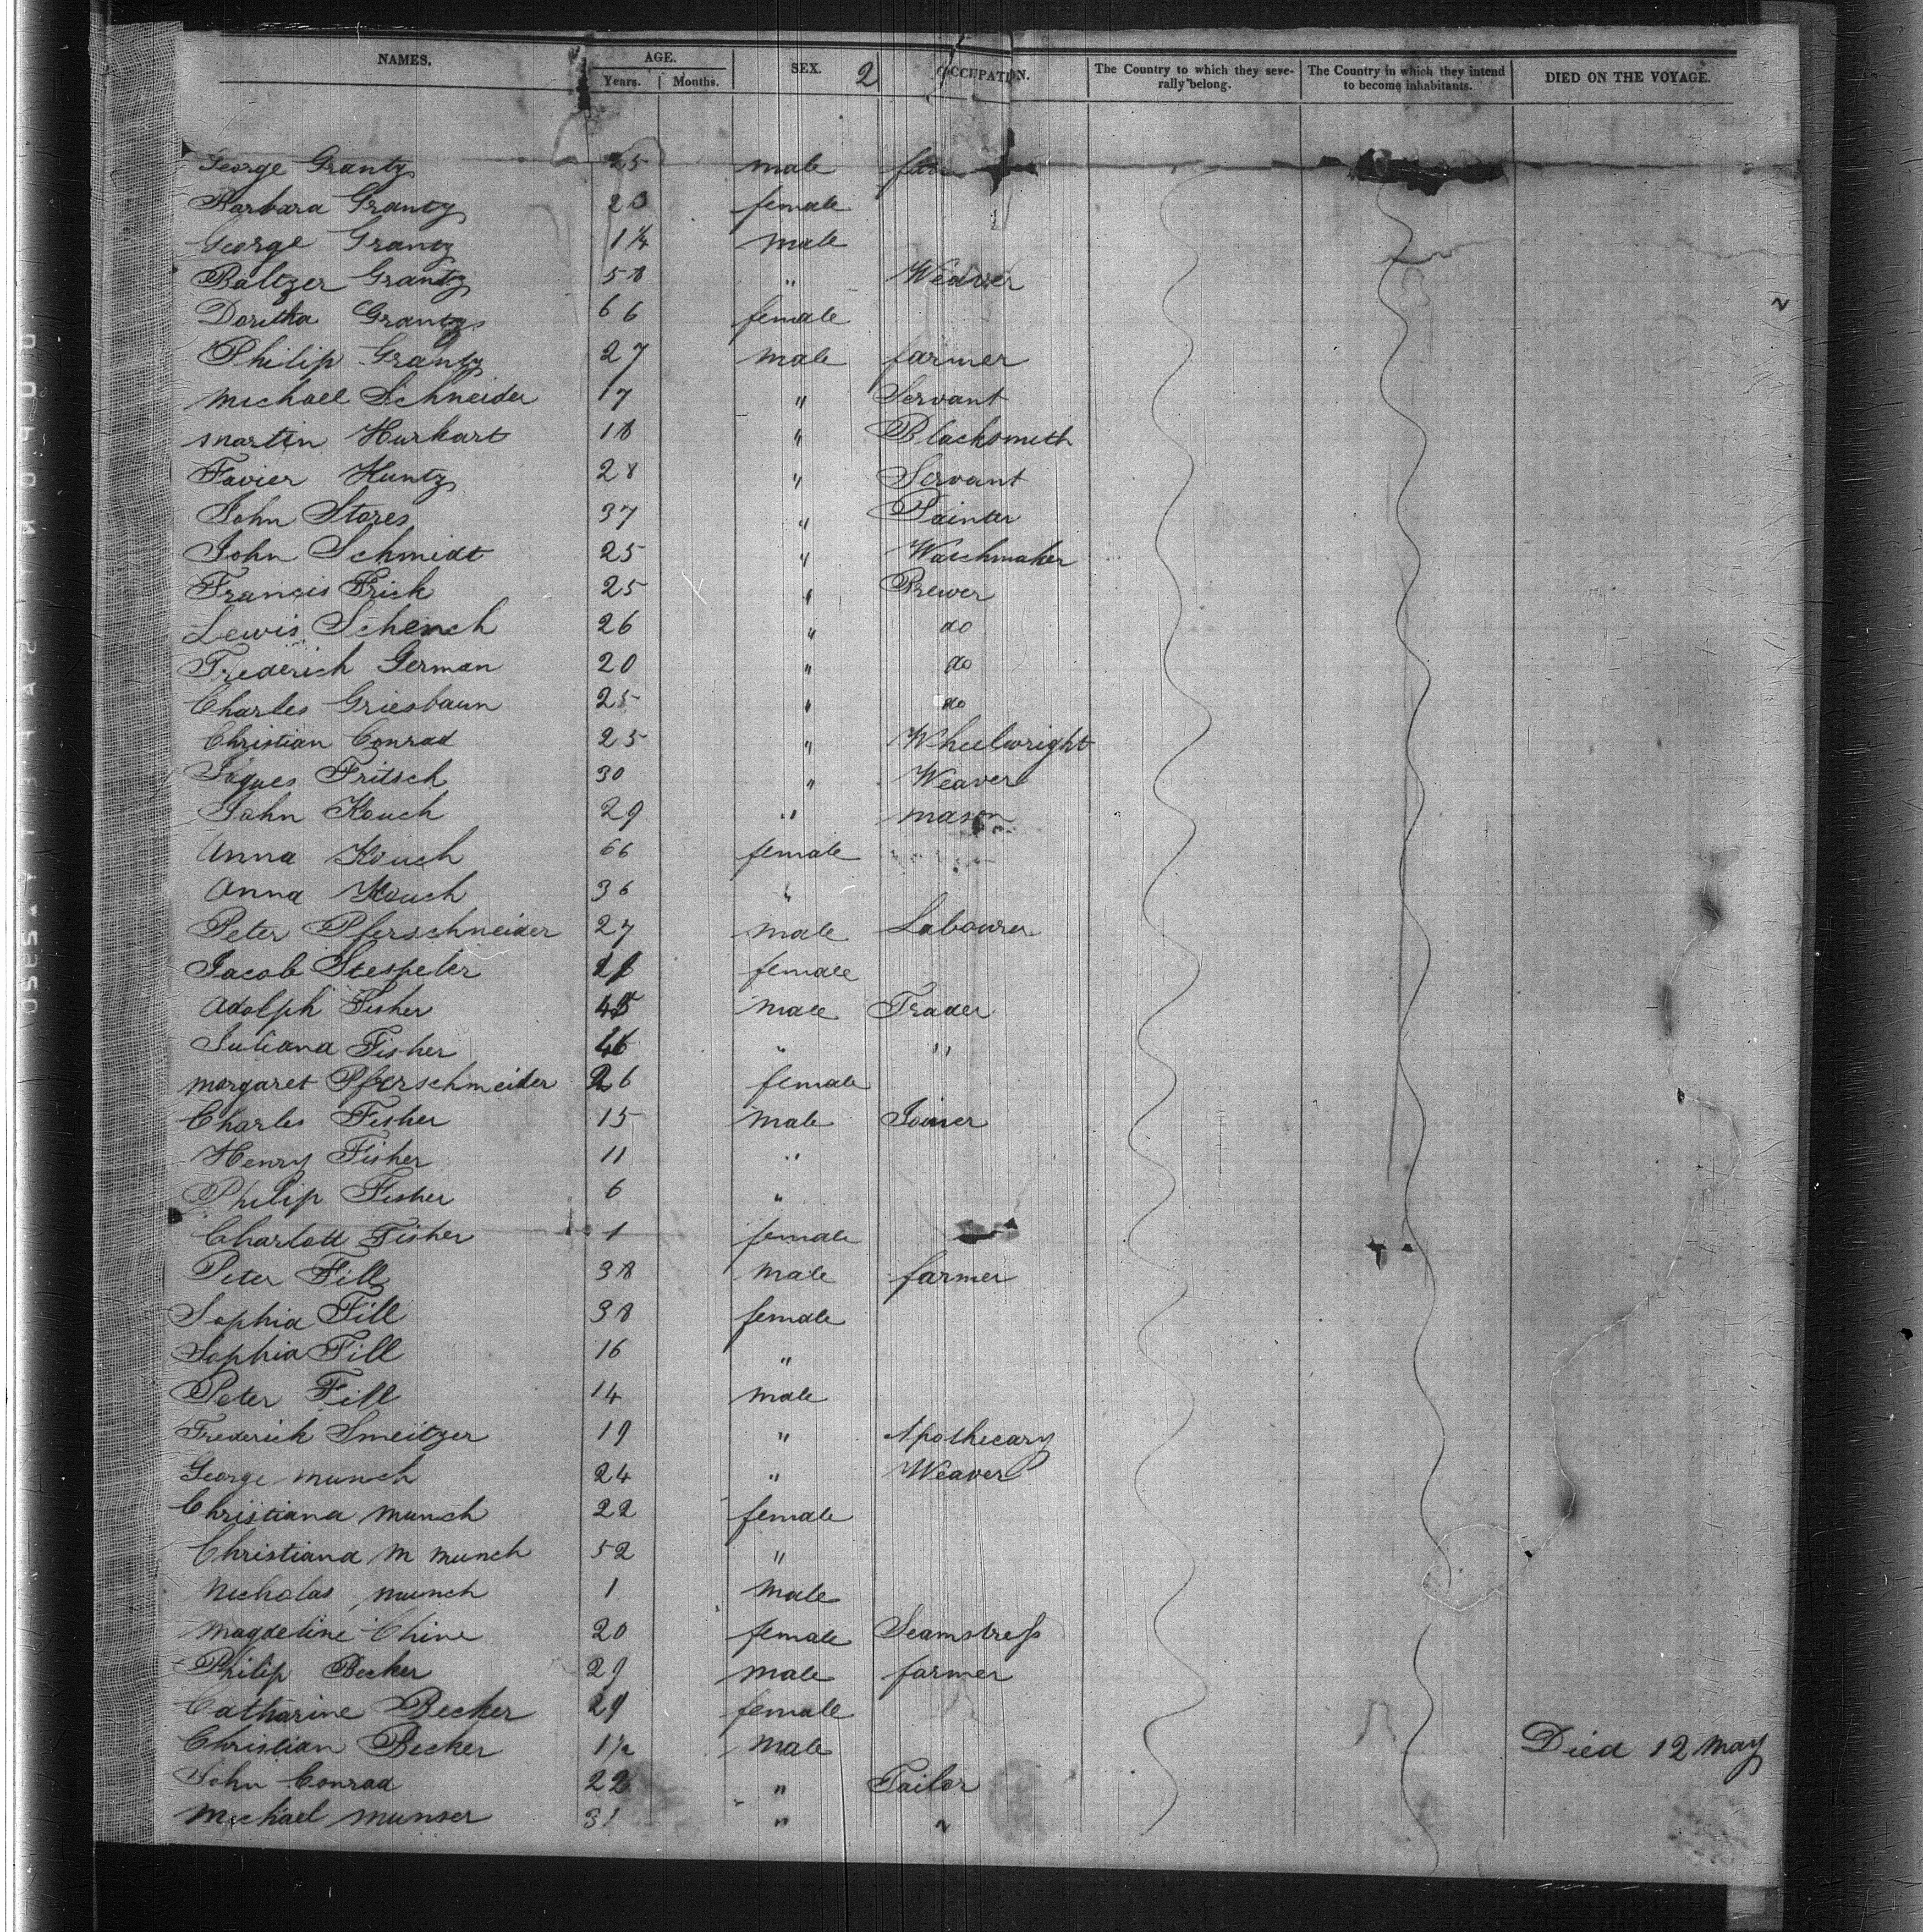 NAMES. AGE. SEX. 2 OCCUPATION. The Country to which they seve- The Country in which they intend DIED ON THE VOYAGE.
Years. Months. rally belong. to become inhabitants.
George Grantz 25 male
Barbara Grantz 23 female
George Grantz 1 1/4 male
Baltzer Grantz 58 " Weaver
Doritha Grantz 66 female
Philip Grantz 27 male farmer
Michael Schneider 17 " Servant
Martin Hurkart 18 " Blacksmith
Favier Huntz 28 " Servant
John Stores 37 " Painter
John Schmidt 25 " Watchmaker
Francis Frick 25 " Brewer
Lewis Schench 26 " do
Frederich German 20 " do
Charles Griesbaum 25 " do
Christian Conrad 25 " Wheelwright
Jaques Fritsch 30 " Weaver
John Kouch 29 " mason
Anna Kouch 66 female
Anna Kouch 36 "
Peter Pferschneider 27 male Labourer
Jacob female
Adolph Fisher 45 male Trader
Juliana Fisher 46 " "
Margaret Pferschmeider 26 female
Charles Fisher 15 male Joiner
Henry Fisher 11 "
Philip Fisher 6 "
Charlott Fisher 1 female
Peter Fill 38 male farmer
Sophia Fill 38 female
Sophia Fill 16 "
Peter Fill 14 male
Frederick Smeitzer 19 " Apothecary
George Munch 24 " Weaver
Christiana Munch 22 female
Christiana M Munch 52 "
Nicholas Munch 1 male
Magdeline Chine 20 female Seamstress
Philip Becker 29 male farmer
Catharine Becker 29 female
Christian Becker 1 1/2 male Died 12 May
John Conrad 22 " Tailor
Michael Munser 31 " "